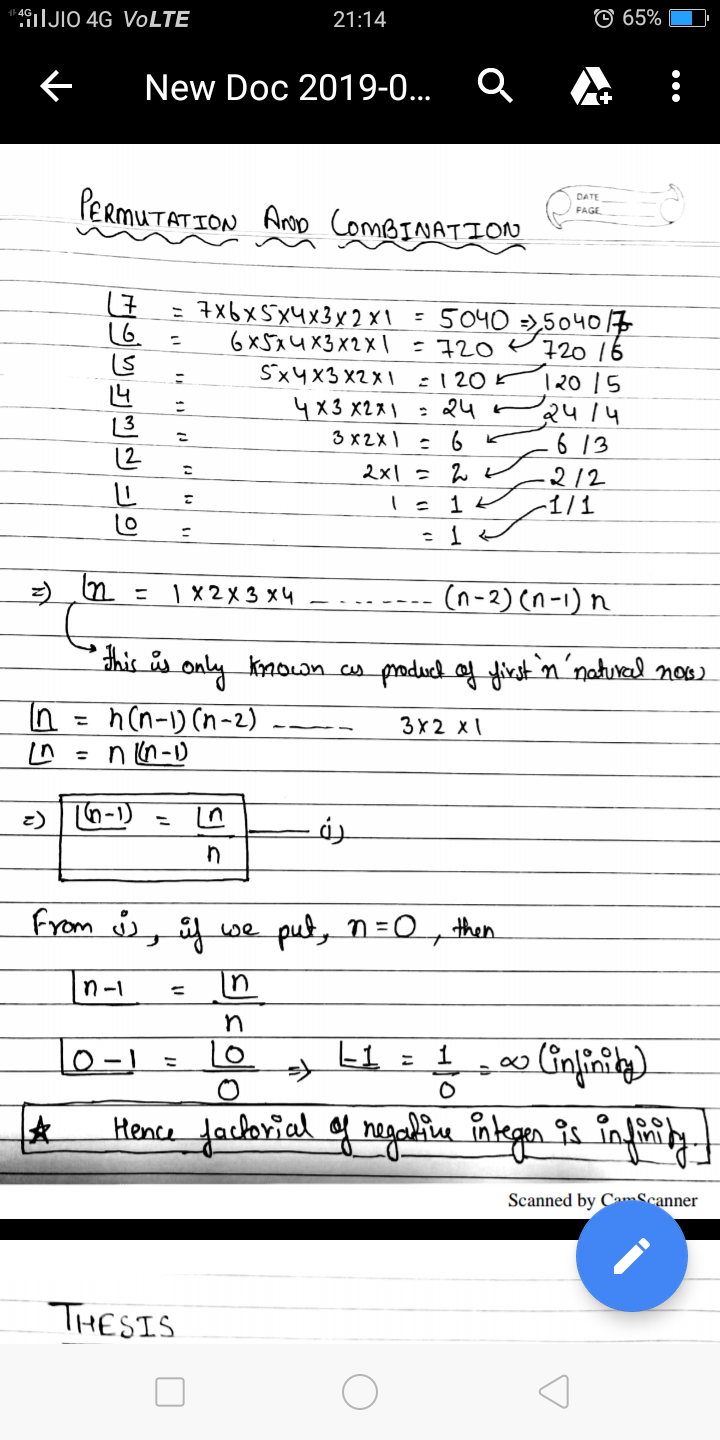 4G JIO 4G VoLTE 21:14 65%
New Doc 2019-0...
PERMUTATION AND COMBINATION
DATE
PAGE
⌊7 = 7×6×5×4×3×2×1 = 5040 ⇒ 5040/7
⌊6 = 6×5×4×3×2×1 = 720 720/6
⌊5 = 5×4×3×2×1 = 120 120/5
⌊4 = 4×3×2×1 = 24 24/4
⌊3 = 3×2×1 = 6 6/3
⌊2 = 2×1 = 2 2/2
⌊1 = 1 = 1 1/1
⌊0 = = 1
⇒ ⌊n = 1×2×3×4 -------- (n-2)(n-1)n
this is only known as product of first 'n' natural no(s)
⌊n = n(n-1)(n-2) ------ 3×2×1
⌊n = n⌊(n-1)
⇒ ⌊(n-1) = ⌊n/n — (i)
From (i), if we put, n=0, then
⌊n-1 = ⌊n/n
⌊0-1 = ⌊0/0 ⇒ ⌊-1 = 1/0 = ∞ (infinity)
★ Hence factorial of negative integer is infinity.
Scanned by CamScanner
THESIS